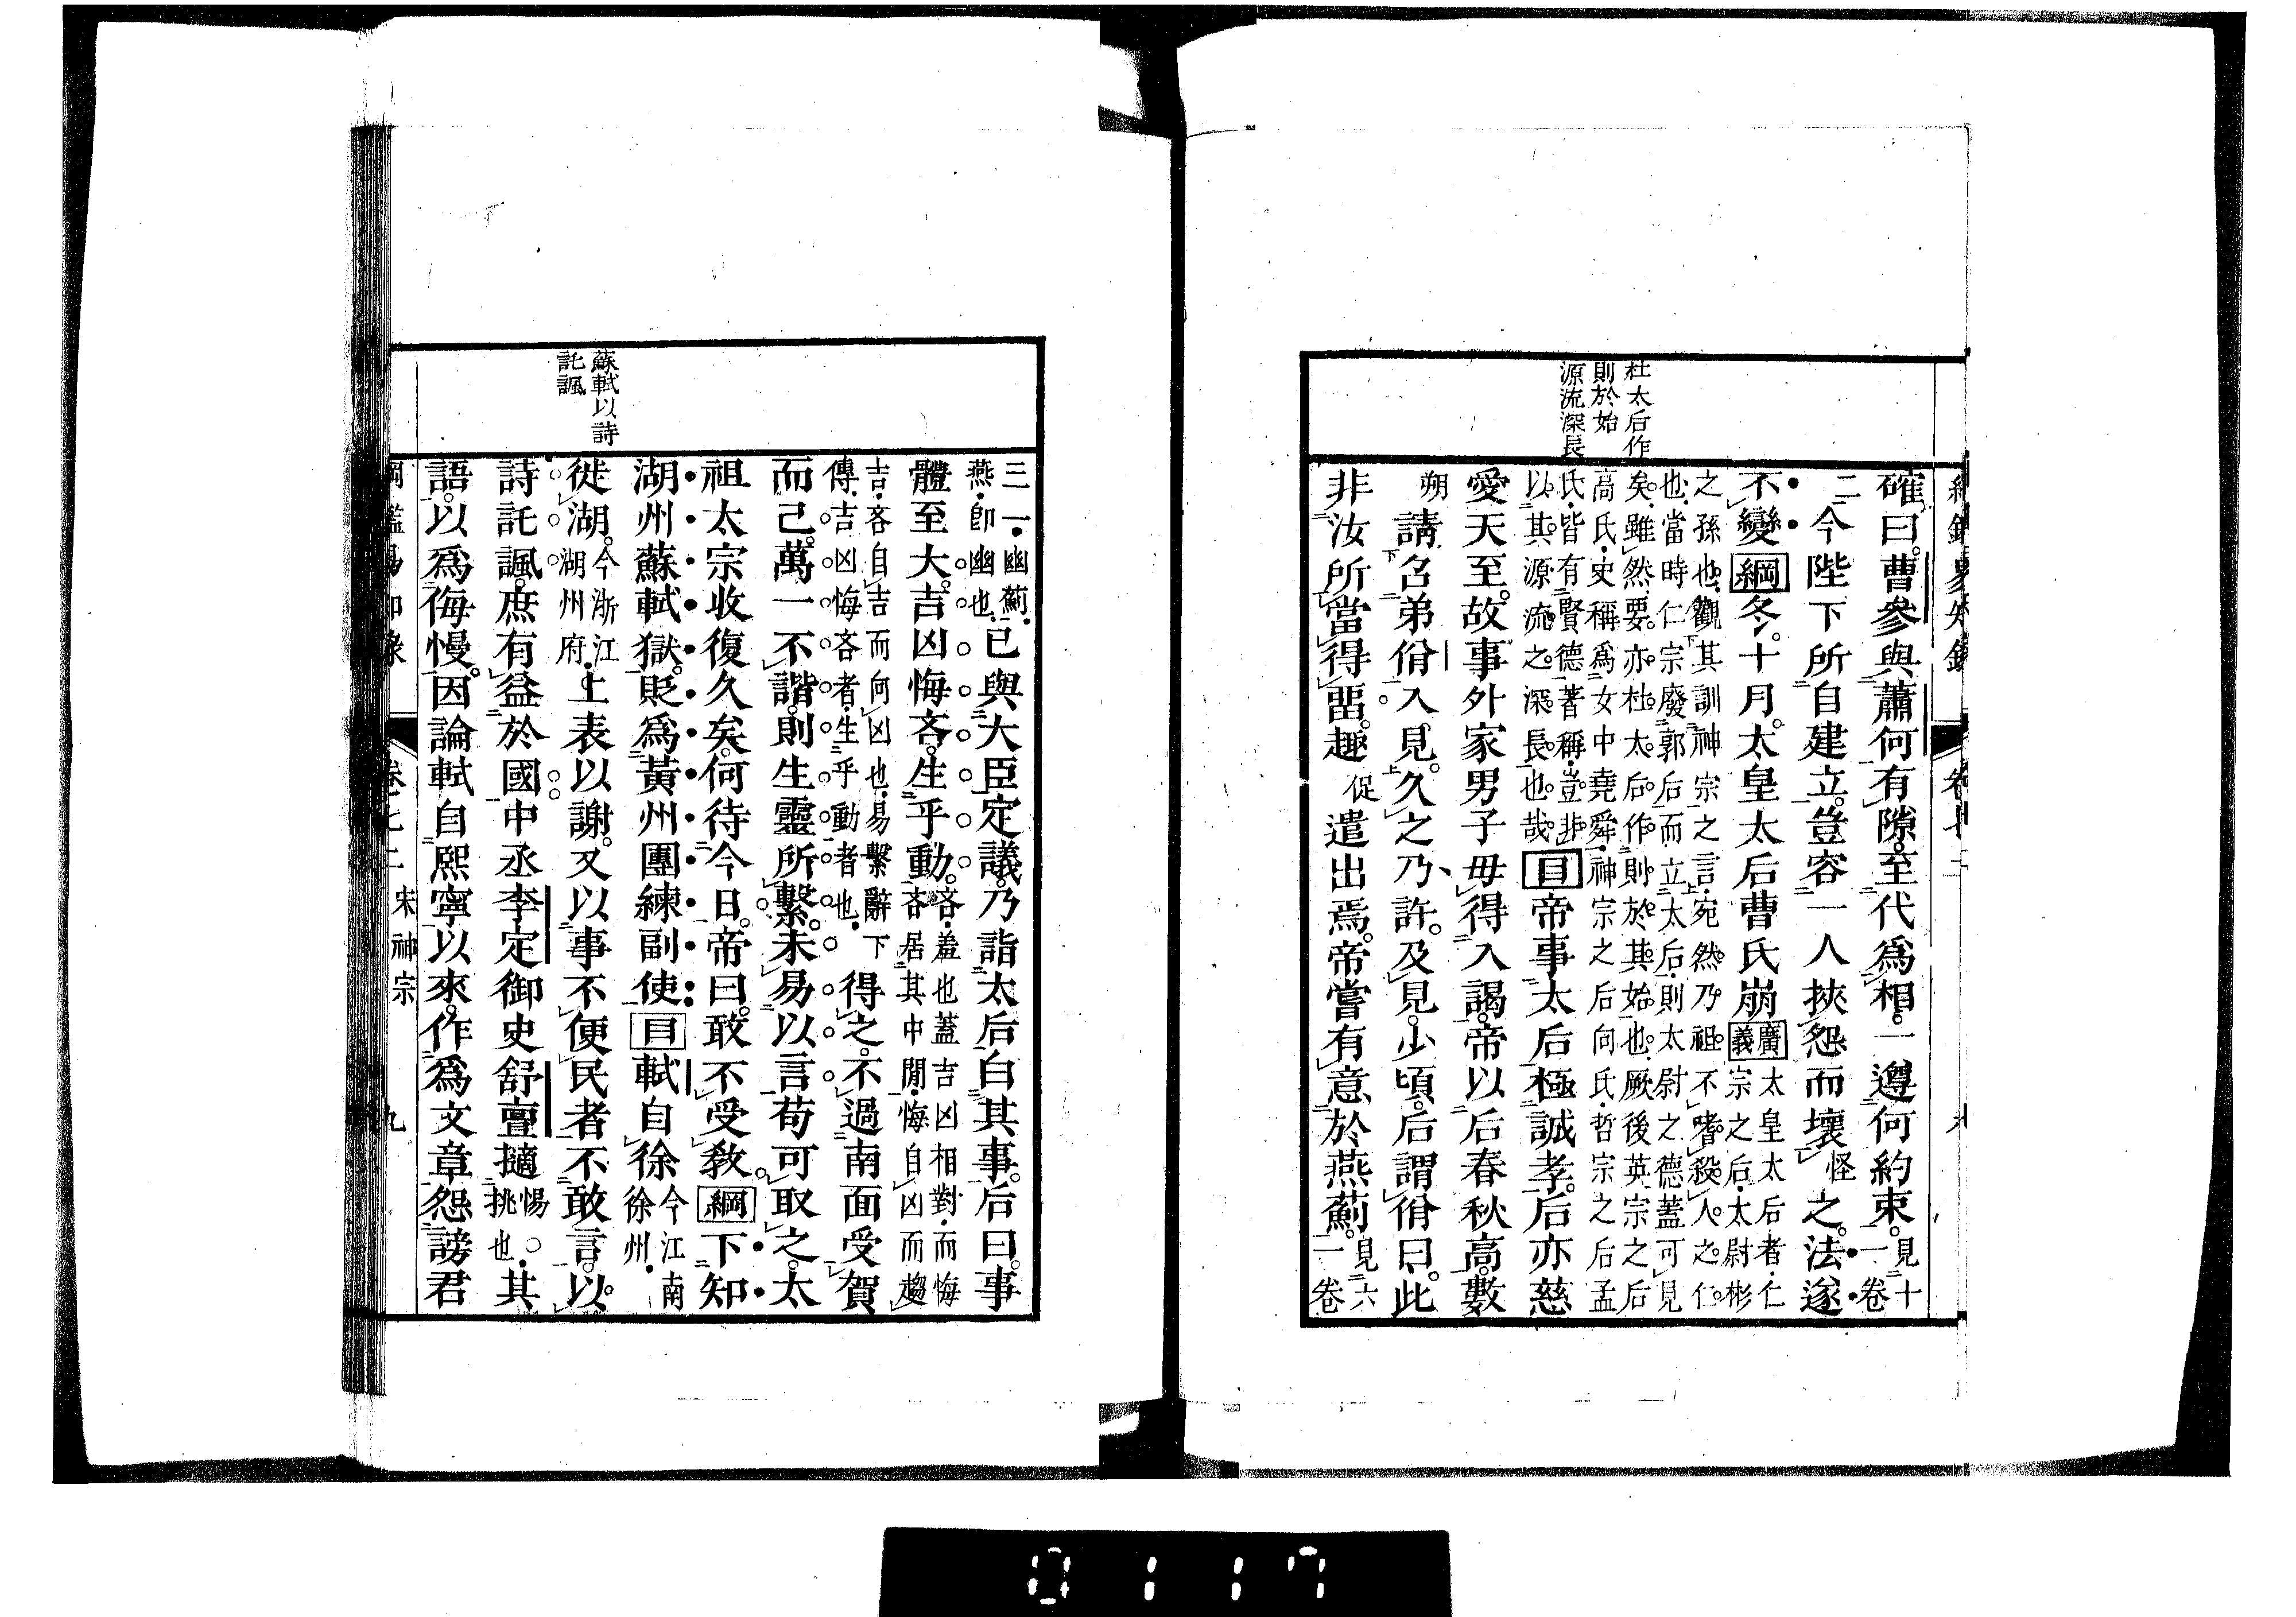 確曰。曹參與蕭何有隙。至代爲相。一遵何約束。見十一卷
二今陛下所自建立。豈容一人挾怨而壞怪之。法遂
不變綱冬。十月。太皇太后曹氏崩廣義太皇太后者。仁宗之后。太尉彬
之孫也。觀其訓神宗之言。宛然乃祖。不嗜殺人之仁。
也。當時仁宗廢郭后而立太后。則太尉之德蓋可見
矣。雖然。要亦杜太后作則於其始也。厥後英宗之后
高氏。史稱爲女中堯舜。神宗之后向氏。哲宗之后孟
氏。皆有賢德著稱。豈非
以其源流之深長也哉。目帝事太后極誠孝。后亦慈
愛天至。故事外家男子毋得入謁。帝以后春秋高。數
朔請召弟佾入見。久之乃許。及見。少頃。后謂佾曰。此
非汝所當得畱。趣促遣出焉。帝嘗有意於燕薊。見六一卷
杜太后作
則於始
源流深長
卷七十二
三一。幽薊。
燕。卽幽也。已與大臣定議。乃詣太后白其事。后曰。事
體至大。吉凶悔吝。生乎動。吝。羞也蓋吉凶相對。而悔吝居其中閒。悔自凶而趨
吉。吝自吉而向凶也。易繫辭下
傳。吉凶悔吝者。生乎動者也。得之。不過南面受賀
而已。萬一不諧。則生靈所繫。未易以言苟可取之。太
祖太宗收復久矣。何待今日。帝曰。敢不受敎。綱下知
湖州蘇軾獄。貶爲黃州團練副使。目軾自徐今江南徐州。
徙湖。今浙江湖州府。上表以謝。又以事不便民者。不敢言。以
詩託諷。庶有益於國。中丞李定御史舒亶擿惕。挑也。其
語。以爲侮慢。因論軾自熙寧以來。作爲文章。怨謗君
蘇軾以詩
託諷
卷七二
宋神宗
九
0117